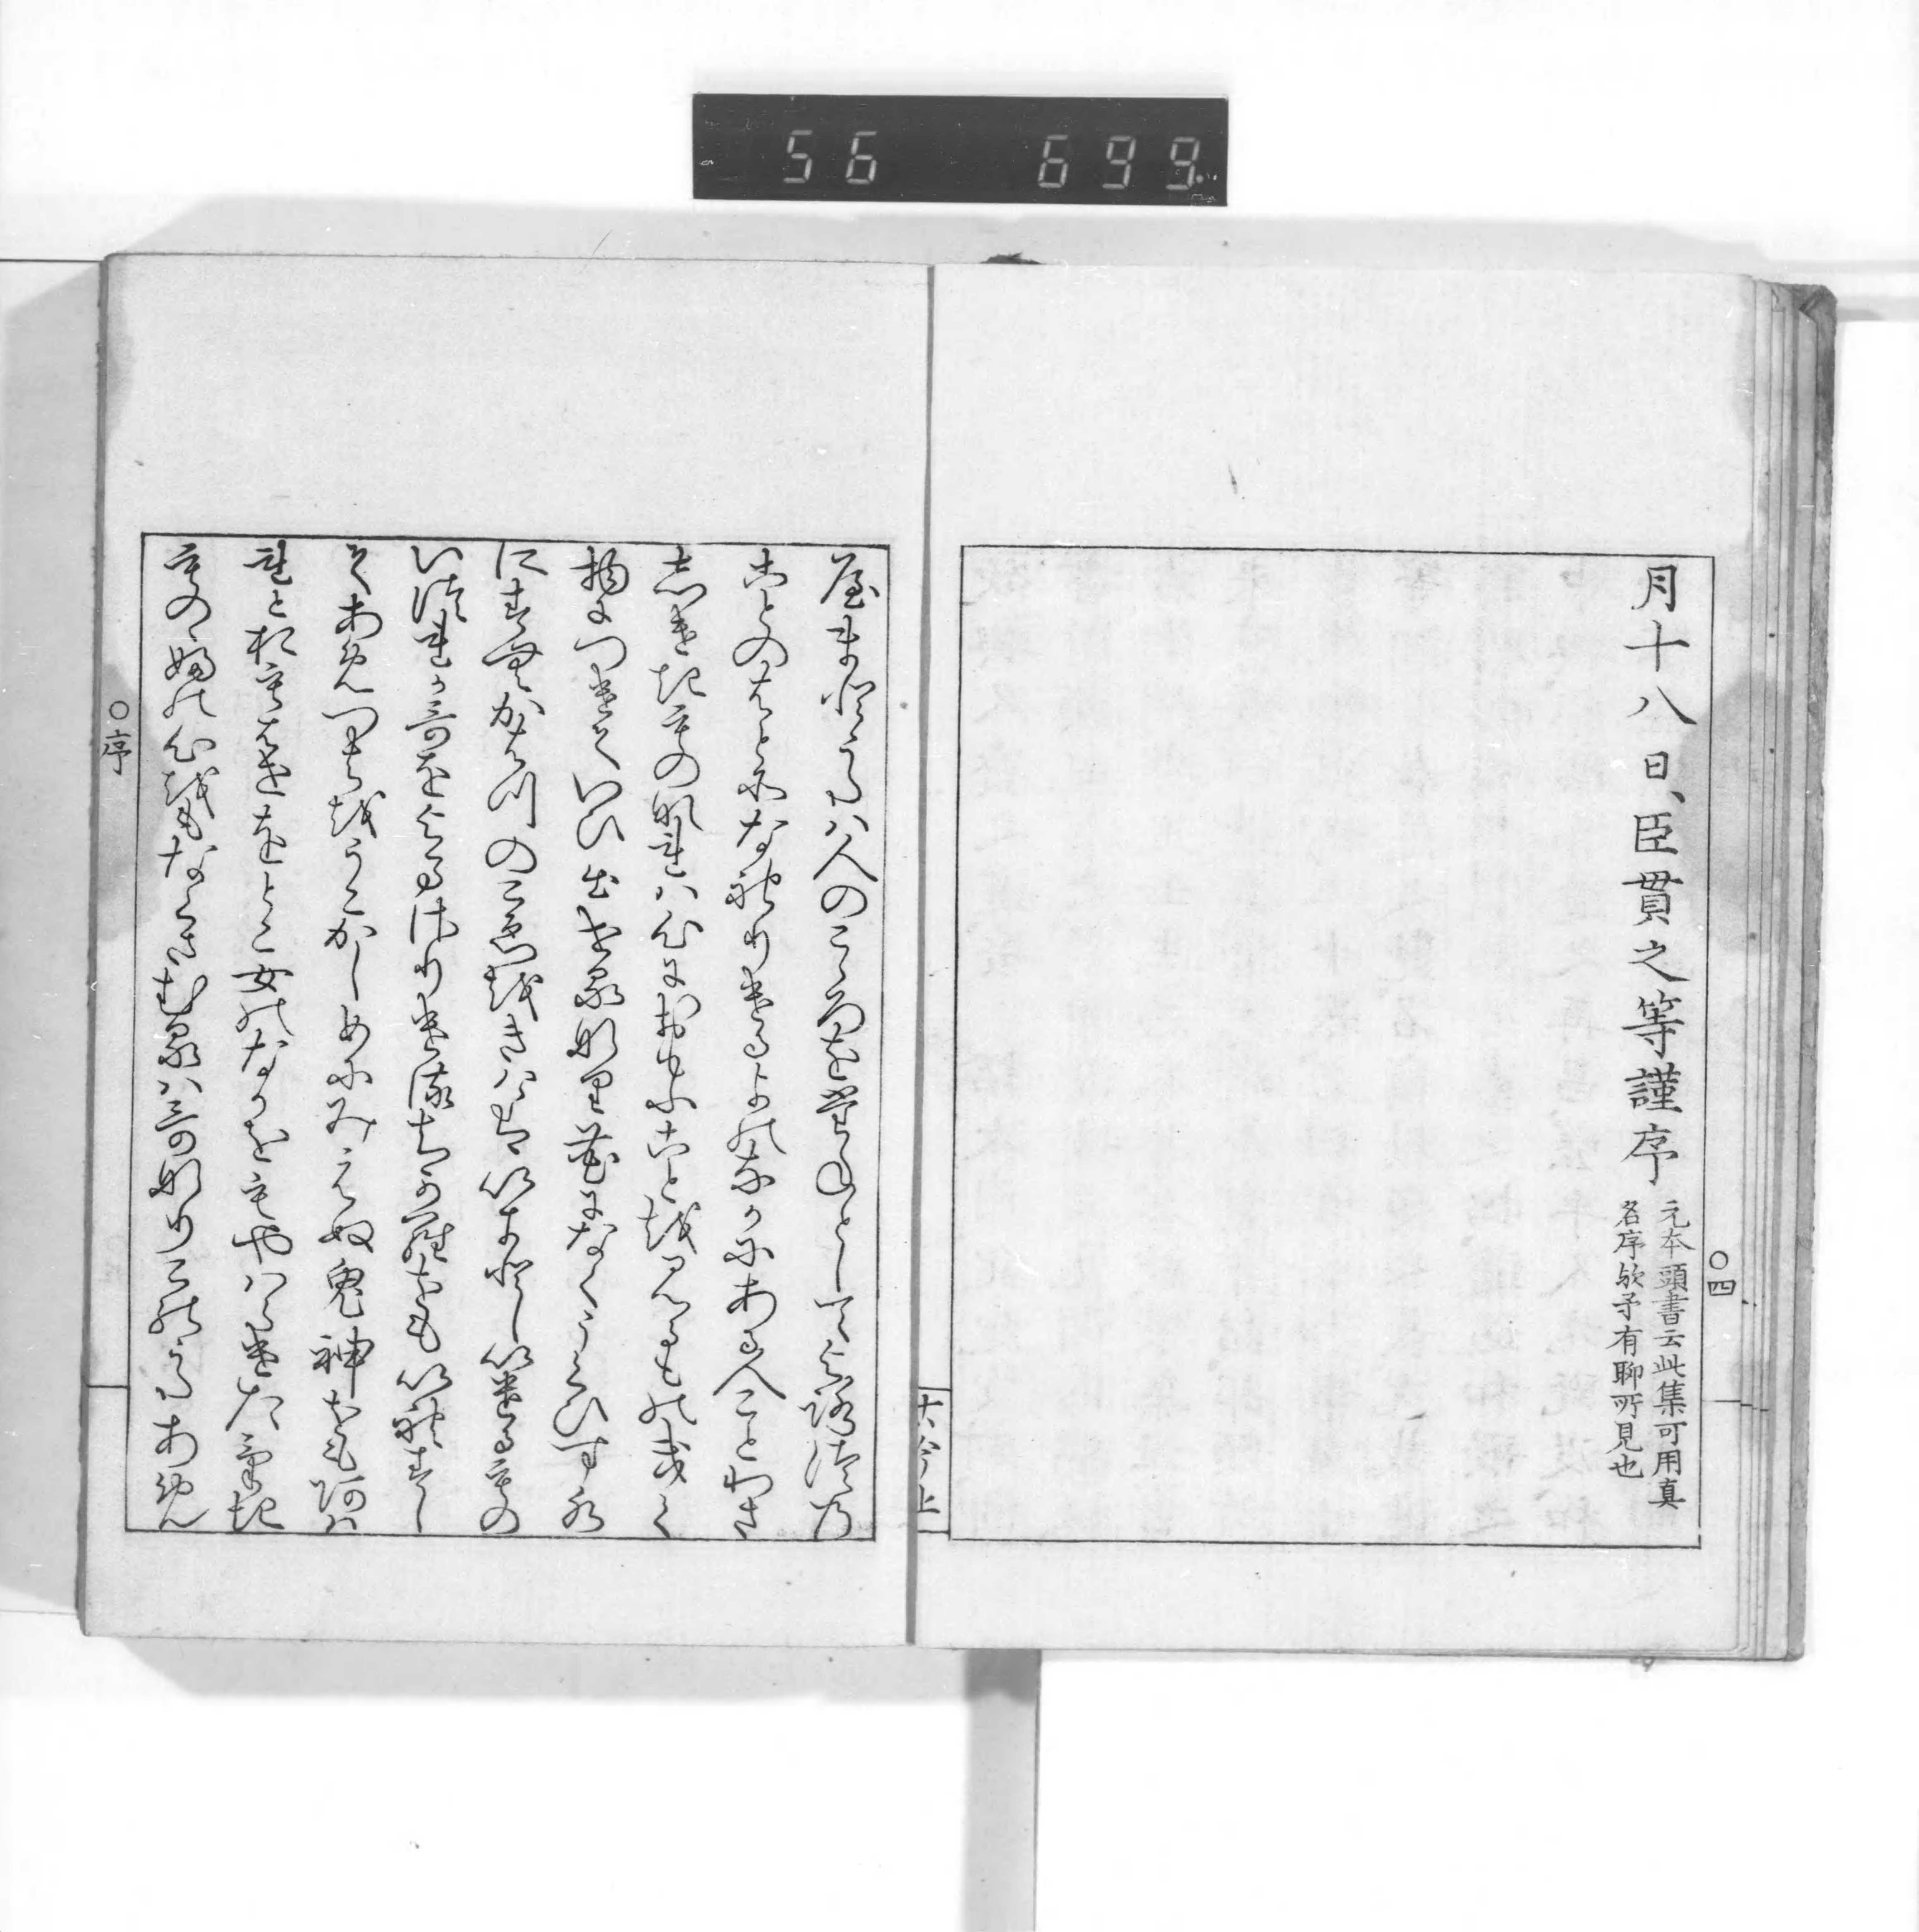 56 699
月十八日、臣貫之等謹序
元本頭書云此集可用真
名序欤予有聊所見也
〇四
やまとうたハ人のこゝろをたねとしてよろつの
ことのはとそなれりけるよのなかにある人ことわさ
しけきものなれハ心におもふことをみるものきく
物につけていひ出せるなり花になくうくひす水
にすむかはつのこゑをきけはいきとしいけるもの
いつれか哥をよまさりけるちからをもいれすし
てあめつちをうこかしめにみえぬ鬼神をもあハ
れとおもはせをとこ女のなかをもやハらけたけき
ものゝふの心をもなくさむるハ哥なりこのうたあめ
〇序